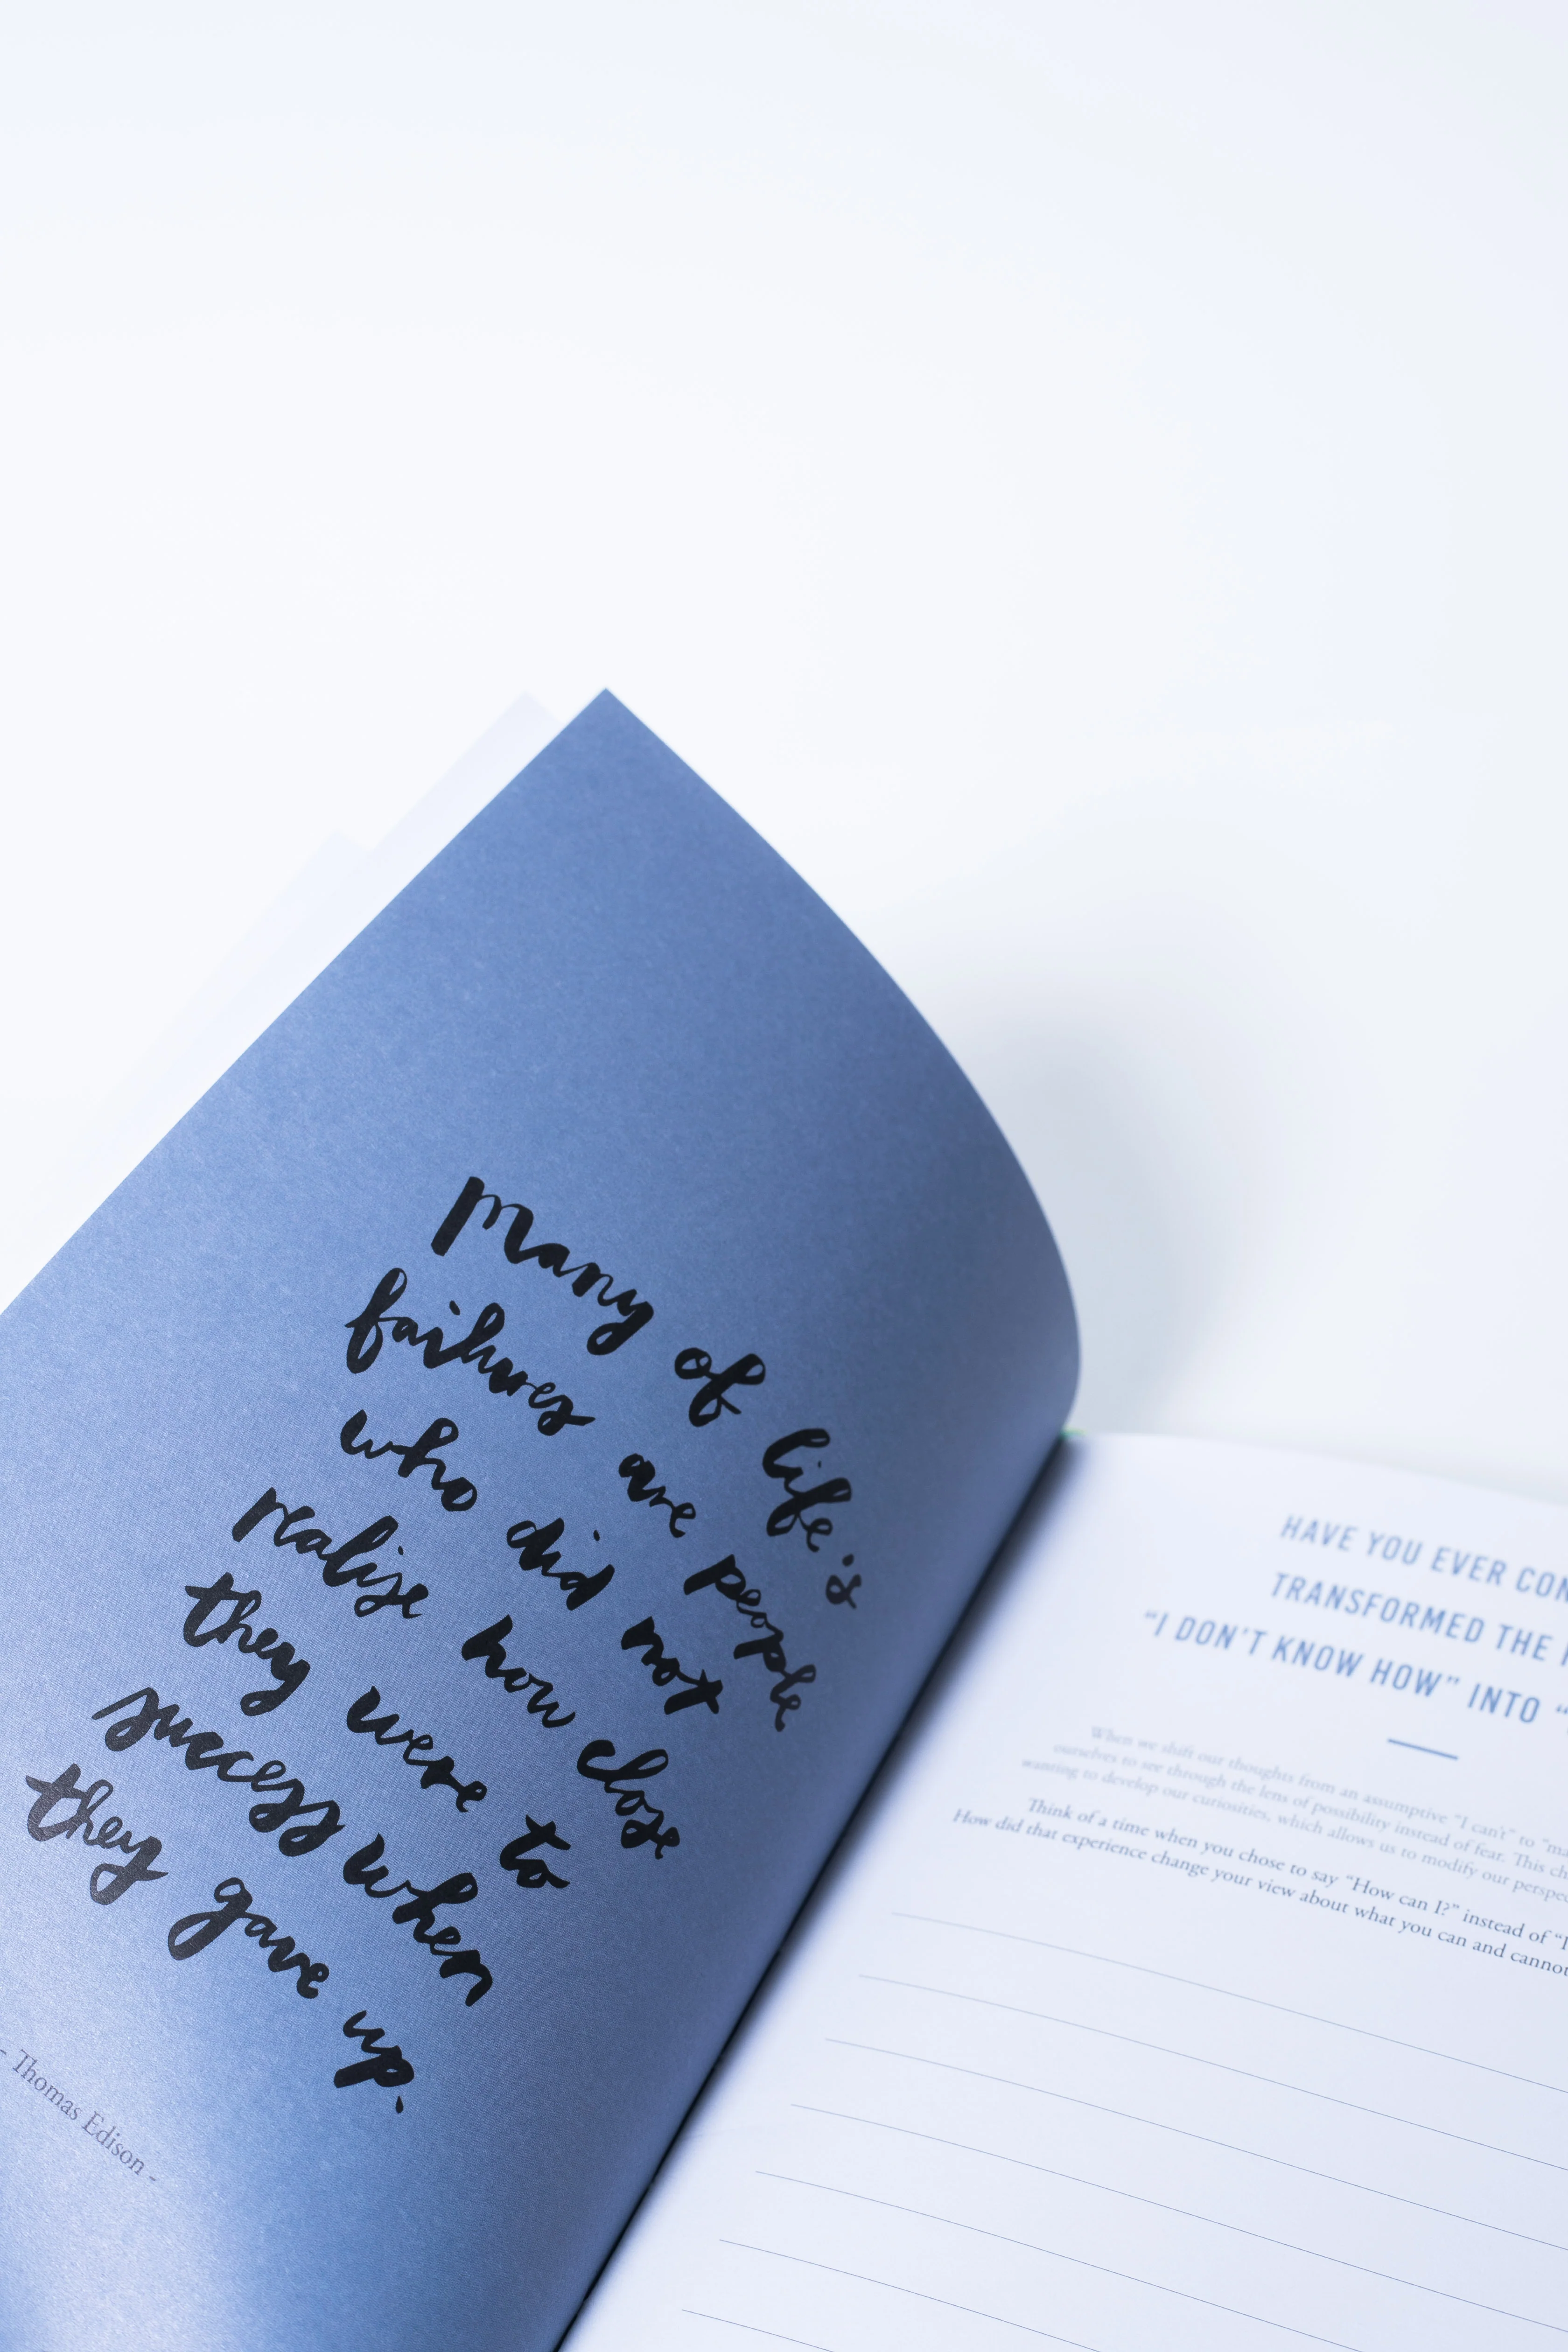 Many of life's
failures are people
who did not
realise how close
they were to
success when
they gave up.
- Thomas Edison -
HAVE YOU EVER
TRANSFORMED THE
“I DON’T KNOW HOW” INTO “
When we shift our thoughts from an assumptive “I can’t” to
ourselves to see through the lens of possibility instead of fear. This
wanting to develop our curiosities, which allows us to modify our
Think of a time when you chose to say “How can I?” instead of “I
How did that experience change your view about what you can and cannot